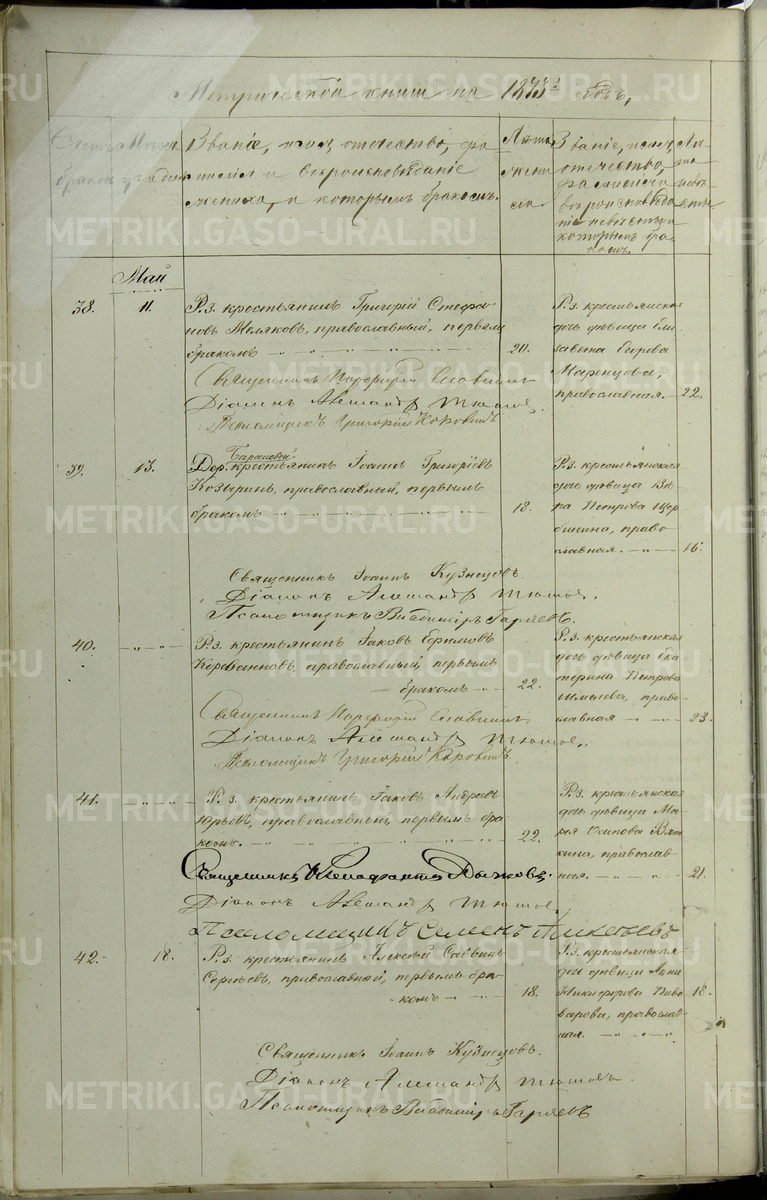 Метрической книги на 1873й годъ,
Счетъ браковъ
Мѣсяцъ и день
Званіе, имя, отчество, фамилія и вѣроисповѣданіе жениха, и которымъ бракомъ.
Лѣта жениха
Званіе, имя, отчество, фамилія и вѣроисповѣданіе невѣсты и которымъ бракомъ.
Лѣта невѣсты
Май
38. 11.
Р. з. крестьянинъ Григорій Стефа-
новъ Меляковъ, православный, первымъ
бракомъ 20.
Р. з. крестьянская
дочь дѣвица Ели-
завета Егорова
Маренцова,
православная. 22.
Священникъ Порфирій Славнинъ
Діаконъ Александръ Тюшовъ.
Псаломщикъ Григорій Коровинъ
39. 13.
Барановой
Дер. крестьянинъ Іоаннъ Григорьевъ
Козыринъ, православный, первымъ
бракомъ 18.
Р. з. крестьянская
дочь дѣвица
Петрова Щер-
бинина, право-
славная. 16.
Священникъ Іоаннъ Кузнецовъ.
Діаконъ Александръ Тюшовъ.
Псаломщикъ Владиміръ Гаряевъ.
40.
Р. з. крестьянинъ Іаковъ Ефимовъ
православный, первымъ
бракомъ 22.
Р. з. крестьянская
дочь дѣвица Ека-
терина Петрова
Шмалева, право-
славная 23.
Священникъ Порфирій Славнинъ.
Діаконъ Александръ Тюшовъ.
Псаломщикъ Григорій Коровинъ
41.
Р. з. крестьянинъ Іаковъ Андреевъ
Юрьевъ, православный, первымъ бра-
комъ. 22.
Р. з. крестьянская
дочь дѣвица Ма-
рья Осипова Вят-
кина, православ-
ная. 21.
Священникъ Ксенофонтъ Дычковъ.
Діаконъ Александръ Тюшовъ.
Псаломщикъ Семенъ
42. 18.
Р. з. крестьянинъ Алексѣй Саввинъ
Сергѣевъ, православный, первымъ бра-
комъ 18.
Р. з. крестьянская
дочь дѣвица Анна
Никифорова Пиво-
варова, православ-
ная. 18.
Священникъ Іоаннъ Кузнецовъ.
Діаконъ Александръ Тюшовъ.
Псаломщикъ Владиміръ Гаряевъ
METRIKI.GASO-URAL.RU